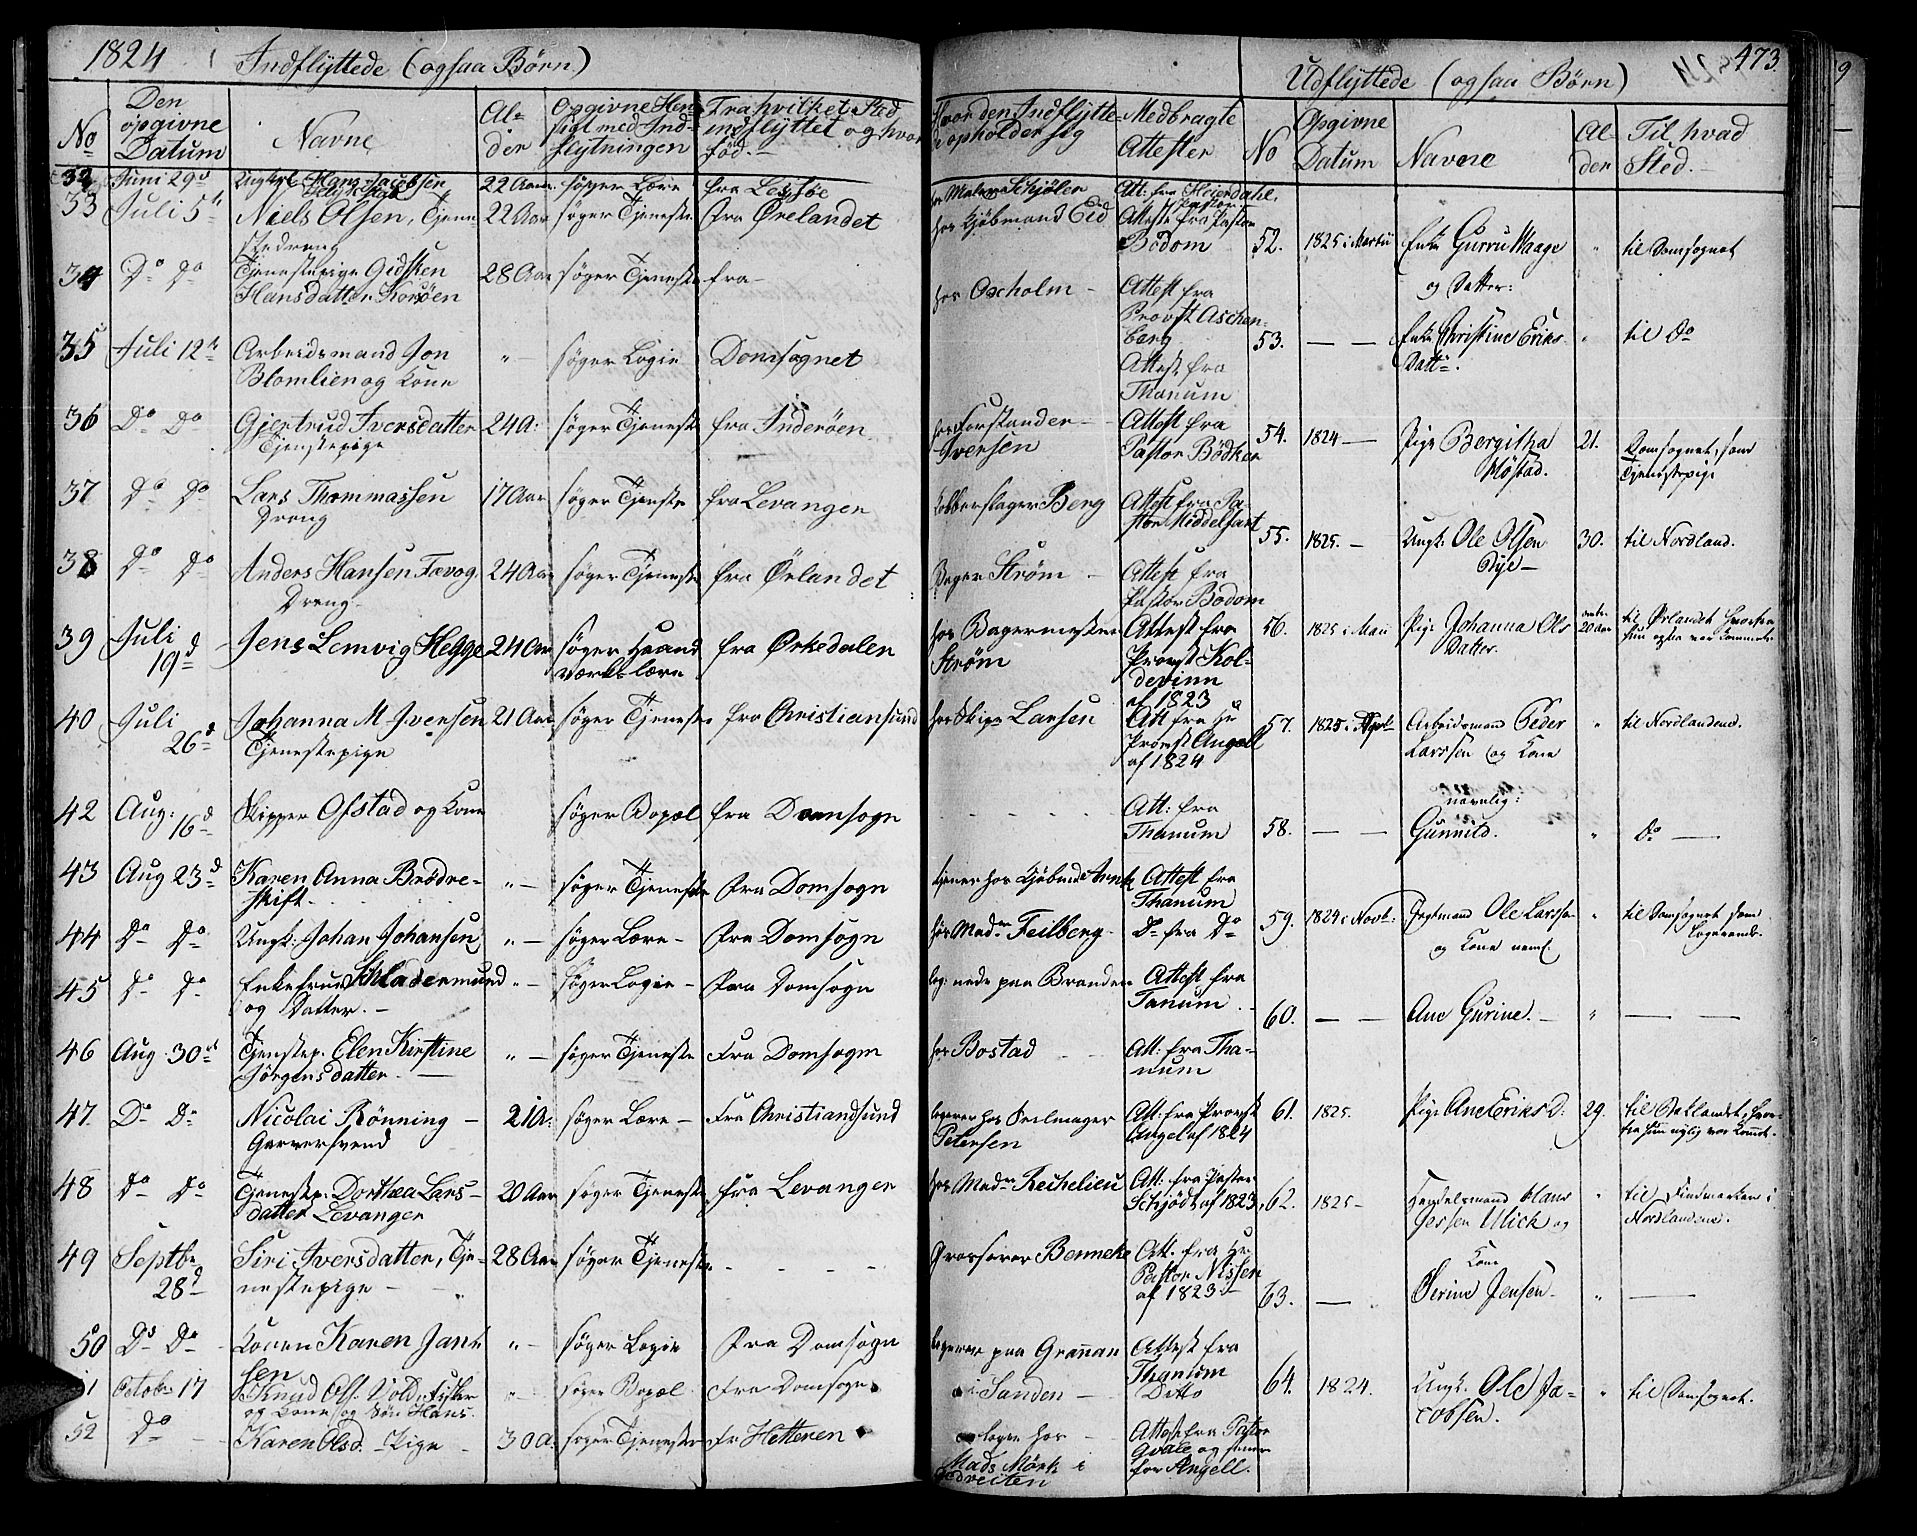 1824 Indflyttede (ogsaa Børn)
No Den opgivne Datum Navne Alder Opgivne Hensigt med Indflytningen Fra hvilket Sted indflyttet og hvor fød.
Hvor den Indflyttede opholder sig Medbragte Attester
32 Juni 29d Ungkarl Hans Jacobsen 22 Aar søger Lære fra Lexsøe hos Maler Schjølen Att: fra Pastor Heierdahl.
33 Juli 5te Niels Olsen, Tjenestedreng 22 Aar søger Tjeneste fra Ørelandet hos Kjøbmand Eid Attest fra Pastor Bodom
34 Do Do Tjenestepige Gidsken Hansdatter Korsøen 28 Aar søger Tjeneste fra- hos Oxholm - Attest fra Provst Aschenberg
35 Juli 12te Arbeidsmand Jon Blomlien og Kone " søger Logie Domsognet Attest fra Thanum
36 Do Do Gjertrud Iversdatter Tjenestepige 24 A: søger Tjeneste fra Inderøen hos Forstander Iversen Attest fra Pastor Bødker
37 Do Do Lars Thommassen Dreng 17 Aar søger Tjeneste fra Levanger Kobberslager Berg Attest fra Pastor Middelfart
38 Do Do Anders Hansen Fævog Dreng 24 Aar søger Tjeneste fra Ørlandet Bager Strøm - Attest fra Pastor Bodom
39 Juli 19d Jens Lemvig Hegge 24 Aar søger Haandværks lære fra Ørkedalen hos Bagermester Strøm Attest fra Provst Koldevinn af 1823
40 Juli 26d Johanna M Iversen Tjenestepige 21 Aar søger Tjeneste fra Christiansund hos Skip. Larsen Att fra Hr Provst Angell af 1824
42 Aug: 16d Skipper Ofstad og Kone søger Bopæl fra Domsogn Att: fra Thanum
43 Aug 23d Karen Anna Brødreskift. " - søger Tjeneste fra Domsogn tjener hos Kjøbmd Arntz Attest fra Thanum
44 Do Do Ungk: Johan Johansen " - søger Lære - fra Domsogn hos Madm Feilberg Do fra Do
45 Do Do Enkefrue Schladermund og Datter. - " - søger Logie - fra Domsogn log: nede paa Branden Attest fra Tanum
46 Aug 30d Tjenestep. Elen Kirstine Jörgensdatter. " - søger Tjeneste Fra Domsogn hos Bostad Att: fra Thanum
47. Do Do Nicolai Rönning - Garversvend 21 A: søger Lære - Fra Christiandsund logerer hos Seilmager Petersen Att: fra Provst Angel af 1824
48 Do Do Tjenestep. Dorthea Larsdatter Levanger 20 Aar søger Tjeneste fra Levanger hos Madm Rechelieu Att: fra Pastor Schjödt af 1823
49 Septbr 28d Siri Iversdatter, Tjenestepige - 28 Aar søger Tjeneste - - - Grosserer Benneke Att. fra Hr Pastor Nissen af 1823
50 Do Do Konen Karen Jansen " - søger Logie fra Domsogn logerer paa Grannan Attest fra Thanum
51 Octobr 17 Knud Ols. Vold, Fisker og Kone og Søn Hans. " søger Bopæl fra Domsogn i Sanden - Ditto
52 Do - Karen Olsd. - Pige - 30 A. søger Tjeneste fr Hetteren loger hos Mads Mörk i Attest fra Pastor Qvale for Angell.
473
Udflyttede (ogsaa Børn)
No Opgivne Datum Navne Alder Til hvad Sted.
52. 1825 i Martii Enke Gurru Waage og Datter: " til Domsognet
53. — — Enke Christine Eriks Dattr. " til Do
54. 1824 — Pige Bergitha Höstad. 21. Domsognet, som Tjenstepige
55. 1825. — Ungk. Ole Olsen Bye — 30. til Nordland.
56. 1825 i Maii Pige Johanna Ols Datter. 20 Aar til Ørlandet hvorfra hun ogsaa var kommet.
57. 1825 i April Arbeidsmand Peder Larssen og Kone " til Nordlandene.
58. — — navnlig: Gunnild. " Do —
59. 1824 i Novb: Jegtmand Ole Larssen og Kone neml. " til Domsognet som Logerende.
60. — — Ane Gurine. — " — —
61. 1825. Pige Ane Eriks D: 29. til Baklandet, hvorfra hun nylig var kommet.
62. 1825 - Handelsmand Hans Jessen Ulick og " til Findmarken i Nordlandene.
63. — Kone Serine Jensen. " —
64. 1824. Ungk. Ole Jacobsen. " til Domsognet.